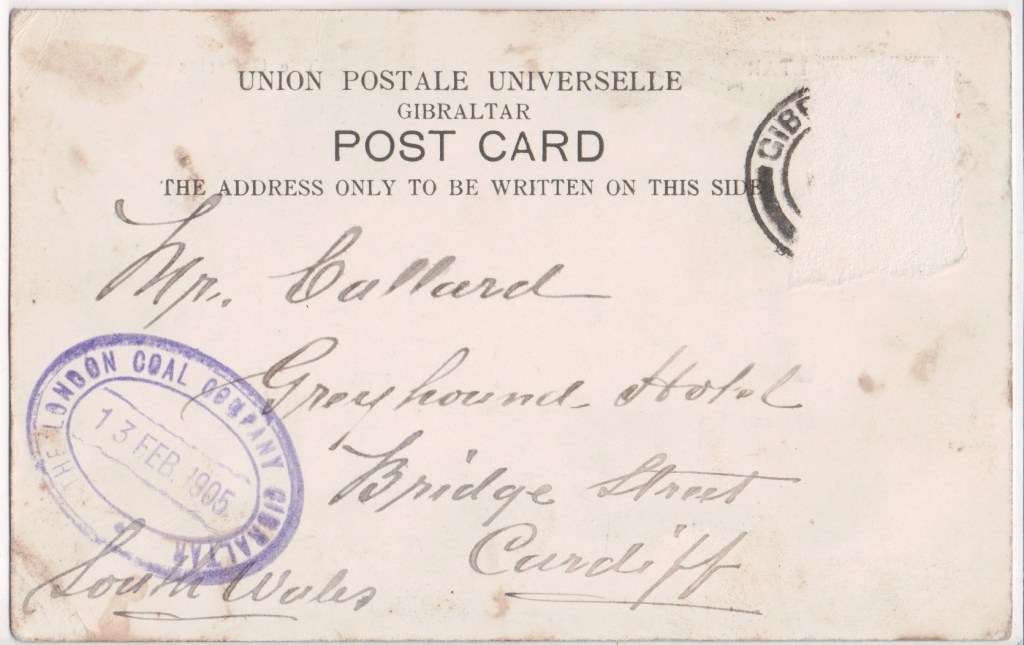 UNION POSTALE UNIVERSELLE
GIBRALTAR
POST CARD
THE ADDRESS ONLY TO BE WRITTEN ON THIS SIDE
GIBR
Mr. Callard
Greyhound Hotel
Bridge Street
Cardiff
South Wales
THE LONDON COAL COMPANY GIBRALTAR
13 FEB. 1905